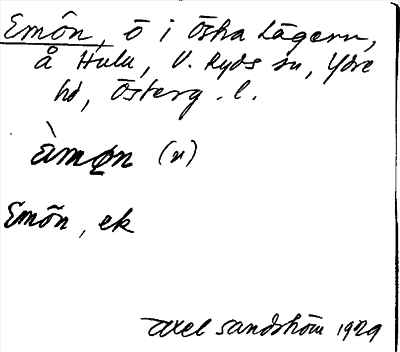 Emôn, ö i Östra Lägern,
å Hulu, V. Ryds sn, Ydre
hd, Österg. l.
àmøn (n)
Emõn, ek
Axel Sandström 1929